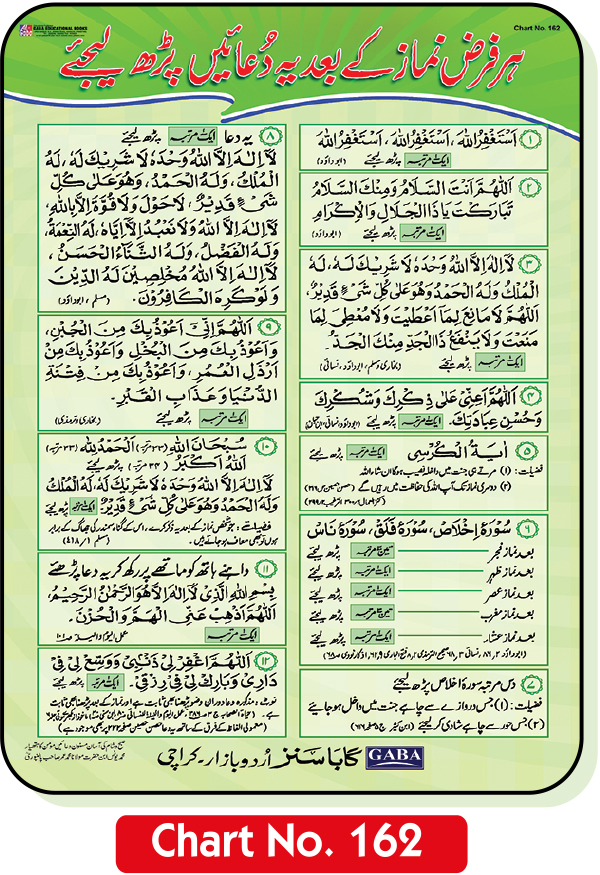 GABA EDUCATIONAL BOOKS
Chart No. 162
ہر فرض نماز کے بعد یہ دُعائیں پڑھ لیجئے
۱ اَسْتَغْفِرُ اللّٰهَ، اَسْتَغْفِرُ اللّٰهَ، اَسْتَغْفِرُ اللّٰهَ
ایک مرتبہ پڑھ لیجئے (ابوداؤد)
۲ اَللّٰهُمَّ اَنْتَ السَّلَامُ وَمِنْكَ السَّلَامُ
تَبَارَكْتَ يَا ذَا الْجَلَالِ وَالْاِكْرَامِ
ایک مرتبہ پڑھ لیجئے (ابوداؤد)
۳ لَآ اِلٰهَ اِلَّا اللّٰهُ وَحْدَهٗ لَا شَرِيْكَ لَهٗ، لَهُ
الْمُلْكُ وَلَهُ الْحَمْدُ وَهُوَ عَلٰى كُلِّ شَيْءٍ قَدِيْرٌ،
اَللّٰهُمَّ لَا مَانِعَ لِمَا اَعْطَيْتَ وَلَا مُعْطِيَ لِمَا
مَنَعْتَ وَلَا يَنْفَعُ ذَا الْجَدِّ مِنْكَ الْجَدُّ۔
ایک مرتبہ پڑھ لیجئے (بخاری ومسلم، ابوداؤد، نسائی)
۴ اَللّٰهُمَّ اَعِنِّيْ عَلٰى ذِكْرِكَ وَشُكْرِكَ
وَحُسْنِ عِبَادَتِكَ۔ ایک مرتبہ پڑھ لیجئے (ابوداؤد، نسائی، ابن حبان)
۵ اٰيَةُ الْكُرْسِى ایک مرتبہ پڑھ لیجئے
فضیلت: (۱) مرتے ہی جنت میں داخلہ نصیب ہوگا ان شاء اللہ
(۲) دوسری نماز تک آپ اللہ کی حفاظت میں رہیں گے
۶ سُوْرَةُ اِخْلَاصْ، سُوْرَةُ فَلَقْ، سُوْرَةُ نَاسْ
بعد نماز فجر تین تین مرتبہ پڑھ لیجئے
بعد نماز ظہر ایک مرتبہ پڑھ لیجئے
بعد نماز عصر ایک مرتبہ پڑھ لیجئے
بعد نماز مغرب تین تین مرتبہ پڑھ لیجئے
بعد نماز عشاء ایک مرتبہ پڑھ لیجئے
۷ دس مرتبہ سورۃ اخلاص پڑھ لیجئے
فضیلت: (۱) جس دروازے سے چاہے جنت میں داخل ہو جائیے
(۲) جس حور سے چاہے شادی کر لیجئے (ابن کثیر
۸ یہ دعا ایک مرتبہ پڑھ لیجئے
لَآ اِلٰهَ اِلَّا اللّٰهُ وَحْدَهٗ لَا شَرِيْكَ لَهٗ، لَهُ
الْمُلْكُ، وَلَهُ الْحَمْدُ، وَهُوَ عَلٰى كُلِّ
شَيْءٍ قَدِيْرٌ، لَاحَوْلَ وَلَا قُوَّةَ اِلَّا بِاللّٰهِ،
لَآ اِلٰهَ اِلَّا اللّٰهُ وَلَا نَعْبُدُ اِلَّآ اِيَّاهُ، لَهُ النِّعْمَةُ،
وَلَهُ الْفَضْلُ، وَلَهُ الثَّنَاءُ الْحَسَنُ،
لَآ اِلٰهَ اِلَّا اللّٰهُ مُخْلِصِيْنَ لَهُ الدِّيْنَ
وَلَوْ كَرِهَ الْكَافِرُوْنَ۔ (مسلم، ابوداؤد)
۹ اَللّٰهُمَّ اِنِّيْ اَعُوْذُ بِكَ مِنَ الْجُبْنِ،
وَاَعُوْذُ بِكَ مِنَ الْبُخْلِ وَاَعُوْذُ بِكَ مِنْ
اَرْذَلِ الْعُمُرِ، وَاَعُوْذُ بِكَ مِنْ فِتْنَةِ
الدُّنْيَا وَعَذَابِ الْقَبْرِ۔
ایک مرتبہ پڑھ لیجئے (بخاری، ترمذی)
۱۰ سُبْحَانَ اللّٰهِ (۳۳ مرتبہ) اَلْحَمْدُ لِلّٰهِ (۳۳ مرتبہ)
اَللّٰهُ اَكْبَرُ (۳۳ مرتبہ) پڑھ لیجئے
لَآ اِلٰهَ اِلَّا اللّٰهُ وَحْدَهٗ لَا شَرِيْكَ لَهٗ، لَهُ الْمُلْكُ
وَلَهُ الْحَمْدُ وَهُوَ عَلٰى كُلِّ شَيْءٍ قَدِيْرٌ ایک مرتبہ پڑھ لیجئے
فضیلت: جو شخص نماز کے بعد یہ ذکر کرے، اس کے گناہ سمندر کی جھاگ کے برابر
ہوں تو بھی معاف ہو جاتے ہیں۔ (مسلم ۴۱۸/۱)
۱۱ داہنے ہاتھ کو ماتھے پر رکھ کر یہ دعا پڑھئے
بِسْمِ اللّٰهِ الَّذِيْ لَآ اِلٰهَ اِلَّا هُوَ الرَّحْمٰنُ الرَّحِيْمُ،
اَللّٰهُمَّ اَذْهِبْ عَنِّي الْهَمَّ وَالْحُزْنَ۔
ایک مرتبہ پڑھ لیجئے
۱۲ اَللّٰهُمَّ اغْفِرْ لِيْ ذَنْبِيْ وَوَسِّعْ لِيْ فِيْ
دَارِيْ وَبَارِكْ لِيْ فِيْ رِزْقِيْ۔ ایک مرتبہ پڑھ لیجئے
GABA گابا سنز اُردو بازار، کراچی
Chart No. 162